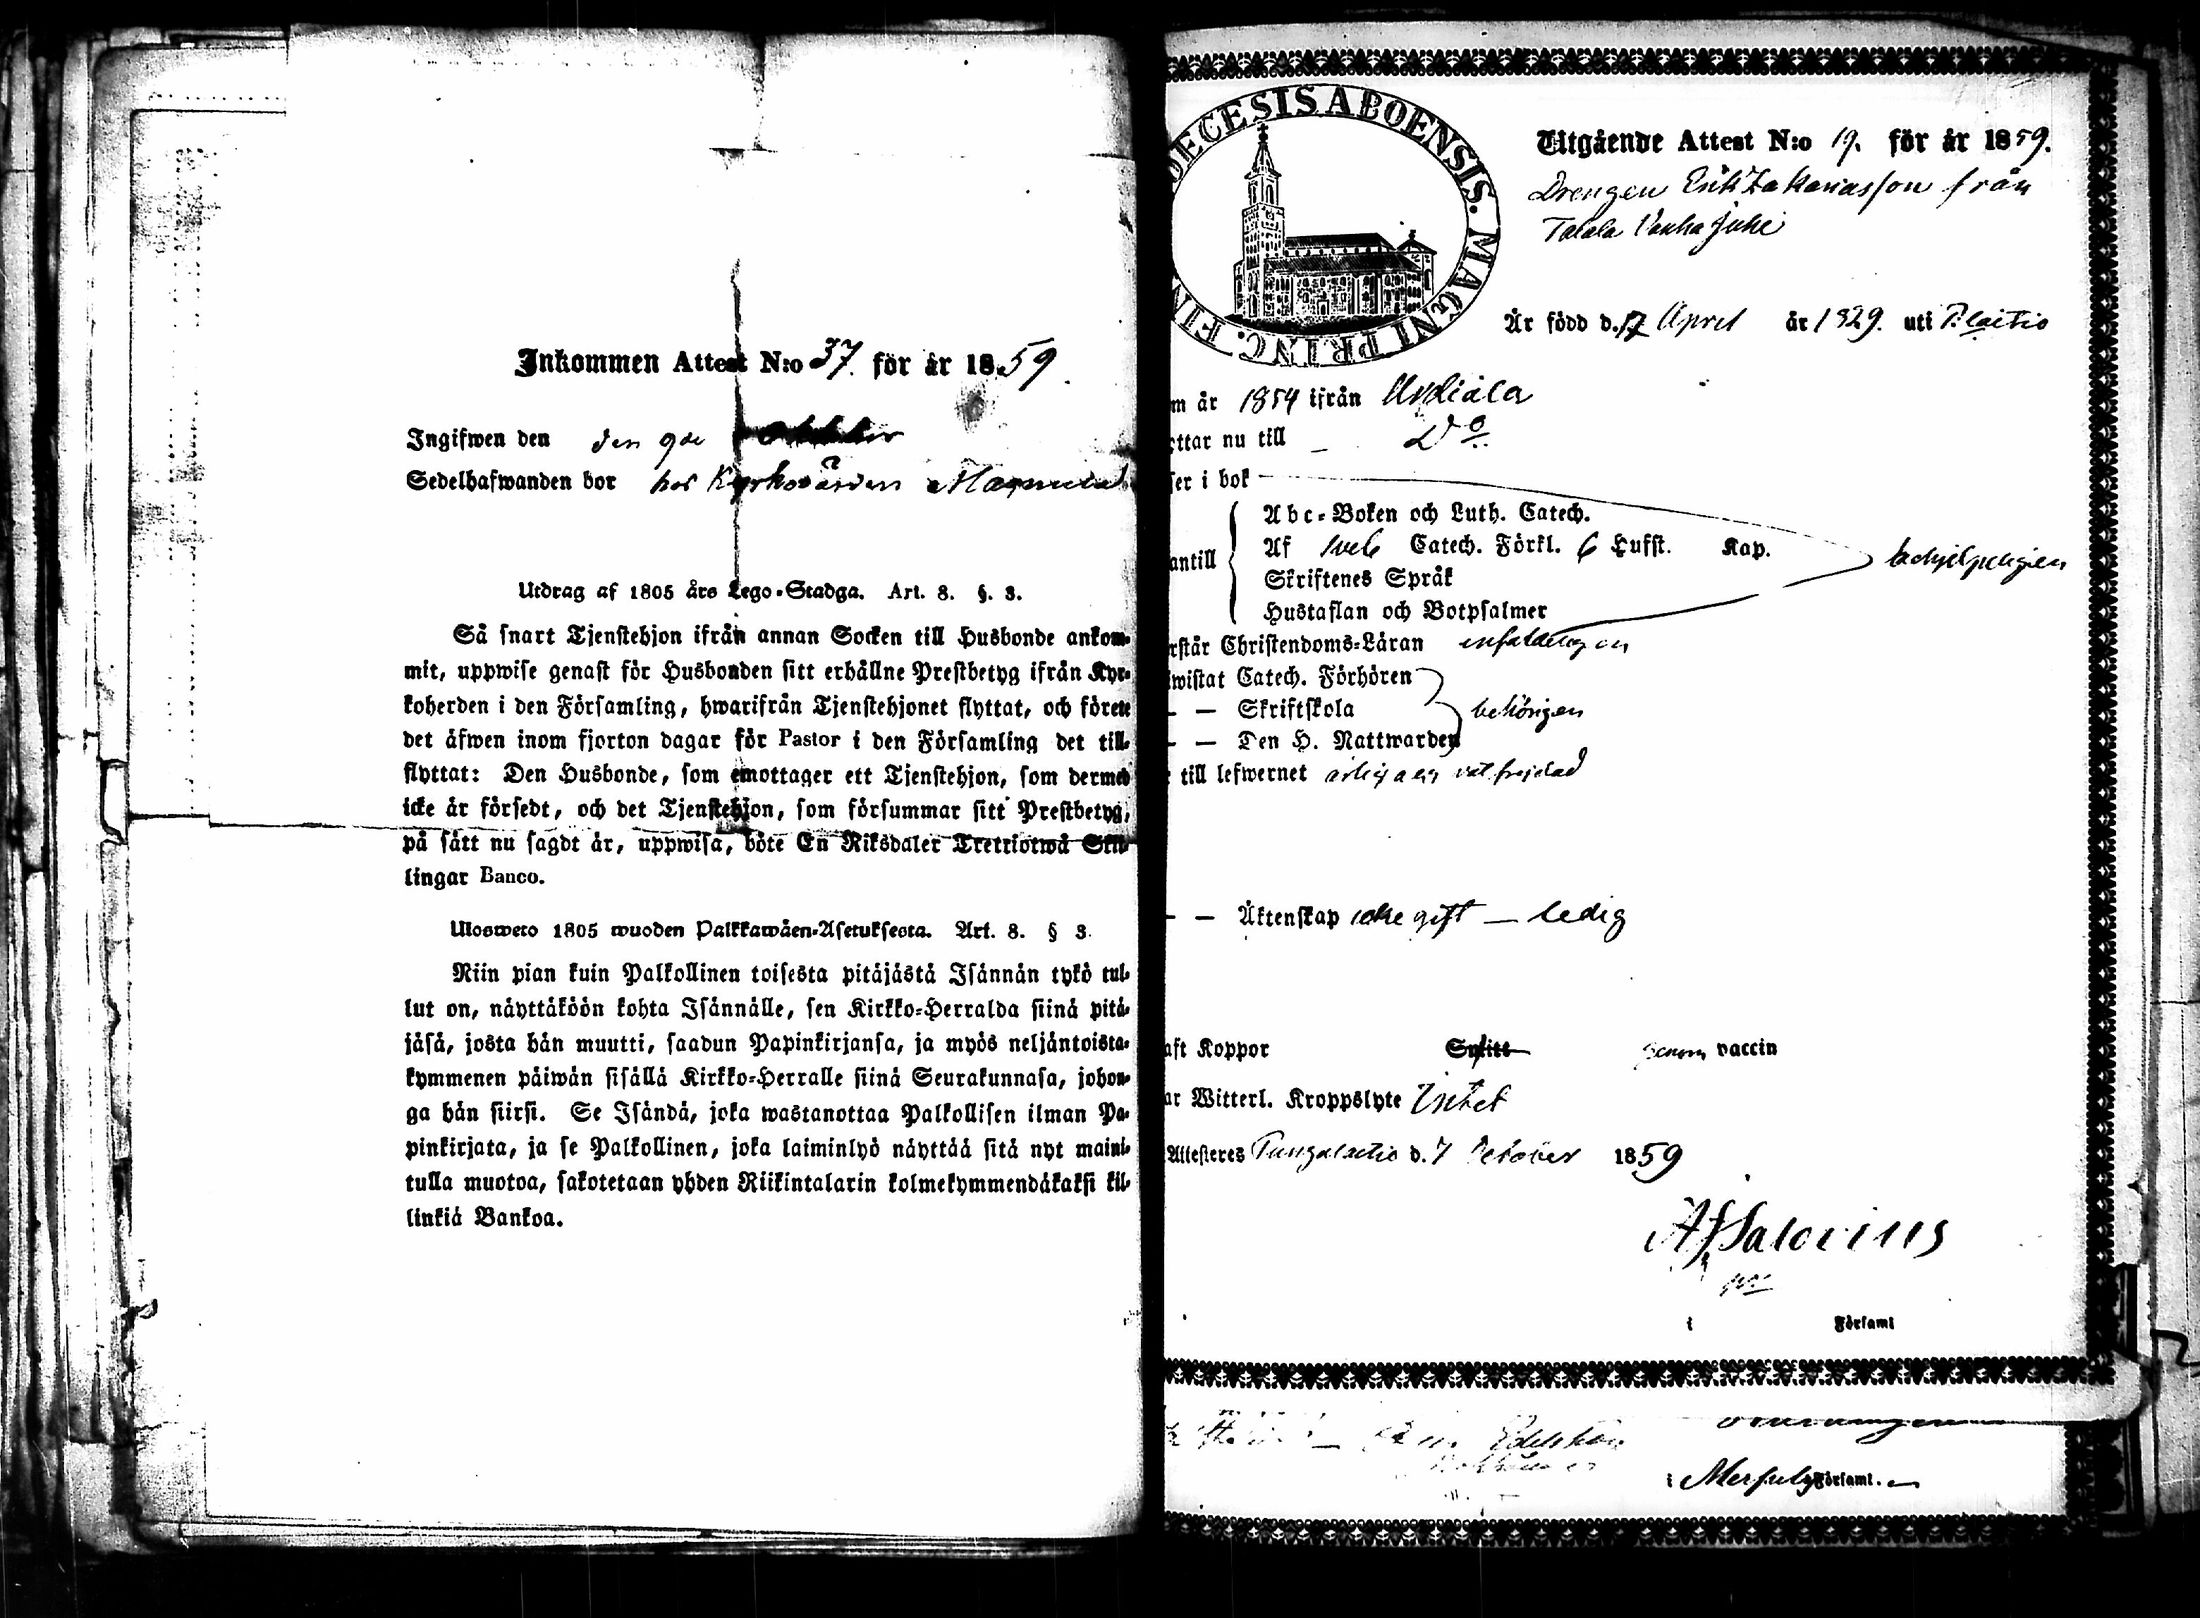 Inkommen Attest N:o 37. för år 1859.
Ingifwen den den 9de
Sedelhafwanden bor hos Kyrkovärden
Utdrag af 1805 års Lego-Stadga. Art. 8. §. 3.
Så snart Tjenstehjon ifrån annan Socken till Husbonde ankom-
mit, uppwise genast för Husbonden sitt erhållne Prestbetyg ifrån Kyr-
koherden i den Församling, hwarifrån Tjenstehjonet flyttat, och förete
det äfwen inom fjorton dagar för Pastor i den Församling det till-
flyttat: Den Husbonde, som emottager ett Tjenstehjon, som dermed
icke är försedt, och det Tjenstehjon, som försummar sitt Prestbetyg,
på sätt nu sagdt är, uppwisa, böte En Riksdaler Tretriotwå Skil-
lingar Banco.
Ulosweto 1805 wuoden Palkkawäen-Asetuksesta. Art. 8. § 3.
Niin pian kuin Palkollinen toisesta pitäjästä Isännän tykö tul-
lut on, näyttäköön kohta Isännälle, sen Kirkko-Herralda siinä pitä-
jäsä, josta hän muutti, saadun Papinkirjansa, ja myös neljäntoista-
kymmenen päiwän sisällä Kirkko-Herralle siinä Seurakunnasa, johon-
ga hän siirsi. Se Isändä, joka wastanottaa Palkollisen ilman Pa-
pinkirjata, ja se Palkollinen, joka laiminlyö näyttää sitä nyt maini-
tulla muotoa, sakotetaan yhden Riikintalarin kolmekymmendäkaksi kil-
linkiä Bankoa.
DECESIS ABOENSIS. MAGNI PRINC. FIN
Utgående Attest N:o 19. för år 1859.
Drengen Erik Zakariasson från
Talala Vanha Juhe
Är född d. 17 April år 1829. uti P:laitio
m år 1854 ifrån Urdiala
ttar nu till D:o
ser i bok
Abc-Boken och Luth. Catech.
antill Af Catech. Förkl. 6 Hufst. Kap. behjelpeligen
Skriftenes Språk
Hustaflan och Botpsalmer
rstår Christendoms-Läran enfaldeligen
wistat Catech. Förhören
— — Skriftskola behörigen
— — Den H. Nattwarden
till lefwernet ärlig och väl frejdad
— — Äktenskap icke gift — ledig
aft Koppor Smitt genom vaccin
ar Witterl. Kroppslyte Intet
Attesteres Pungalaitio d. 7 October 1859
i Församl
i Församl.